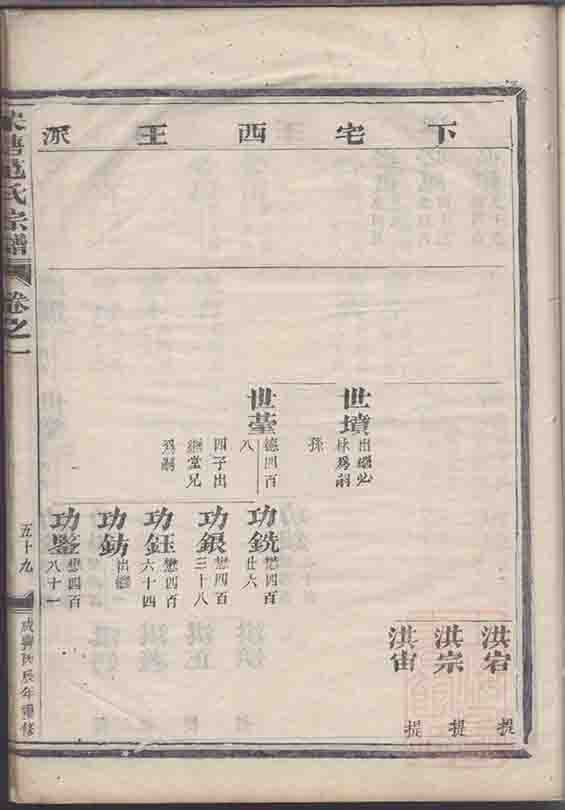 下宅西王派
世墳
出繼必
林爲嗣
孫
世臺
德四百
八
四子出
繼堂兄
爲嗣
功銑
懋四百
廿六
功銀
懋四百
三十八
功鈺
懋四百
六十四
功鈁
出繼
功鑒
懋四百
八十一
洪宕 提
洪宗 提
洪宙 提
塘范氏宗譜 卷之一 五十九 咸豐丙辰年重修